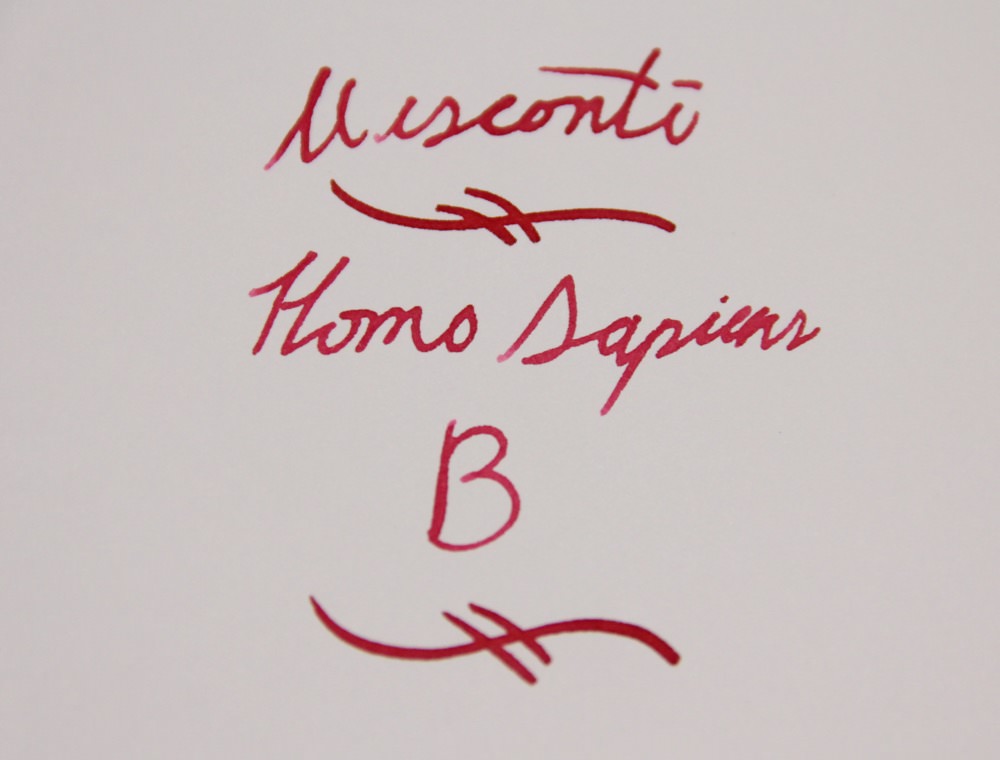 Visconti
Homo Sapiens
B